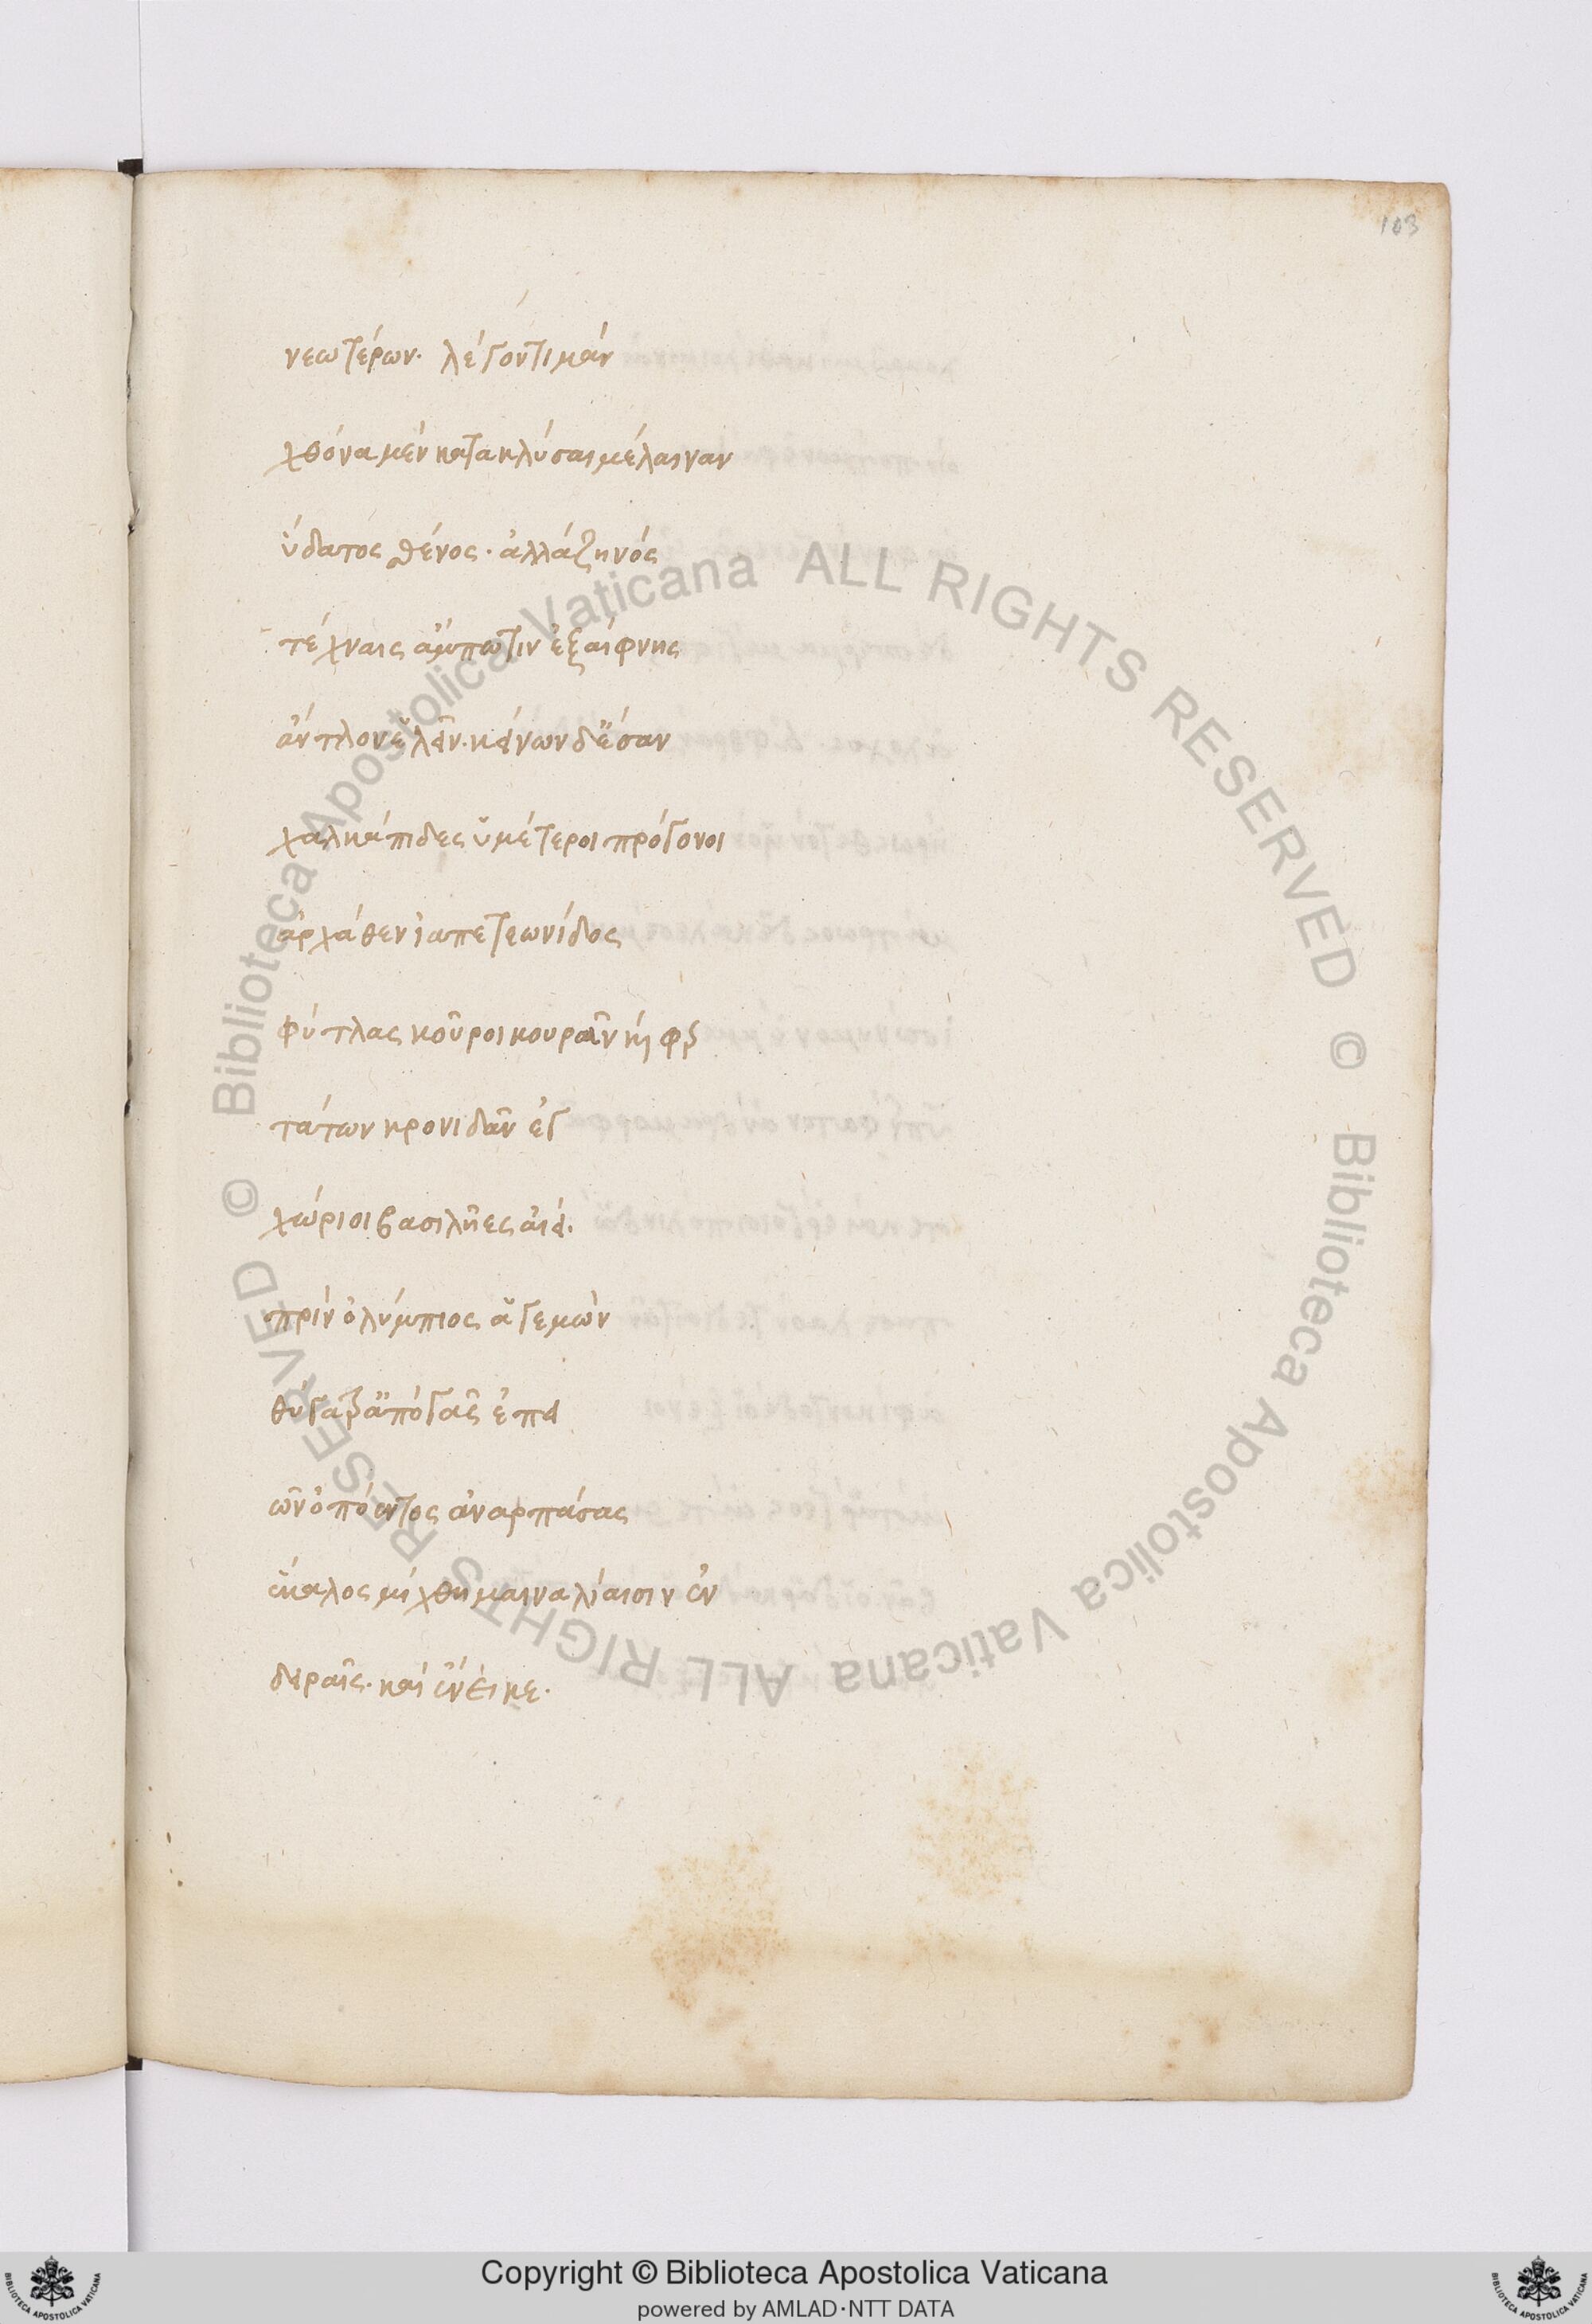 103
νεωτέρων. λέγοντι μάν
χθόνα μέν κατακλύσαι μέλαιναν
ὕδατος σθένος. ἀλλά ζηνός
τέχναις ἄμπωτιν ἐξαίφνης
ἄντλον ἑλᾶν. κείνων δ' ἔσαν
χαλκάπιδες ὑμέτεροι πρόγονοι
ἀρχάθεν ἰαπετιονίδος
φύτλας κοῦροι κουρᾶν κ φερ
τάτων κρονιδᾶν ἐγ
χώριοι βασιλῆες αἰεί.
πρίν ὀλύμπιος ἁγεμών
θύγατρ' ἀπό γᾶς ἐπει
ῶν ὀπόεντος ἀναρπάσας
ἕκαλος μίχθη μαιναλίαισιν ἐν
δειραῖς. καί ἔνεικε.
Biblioteca Apostolica Vaticana ALL RIGHTS RESERVED ©
Biblioteca Apostolica Vaticana ALL RIGHTS RESERVED ©
Copyright © Biblioteca Apostolica Vaticana
powered by AMLAD·NTT DATA
BIBLIOTECA APOSTOLICA VATICANA
BIBLIOTECA APOSTOLICA VATICANA